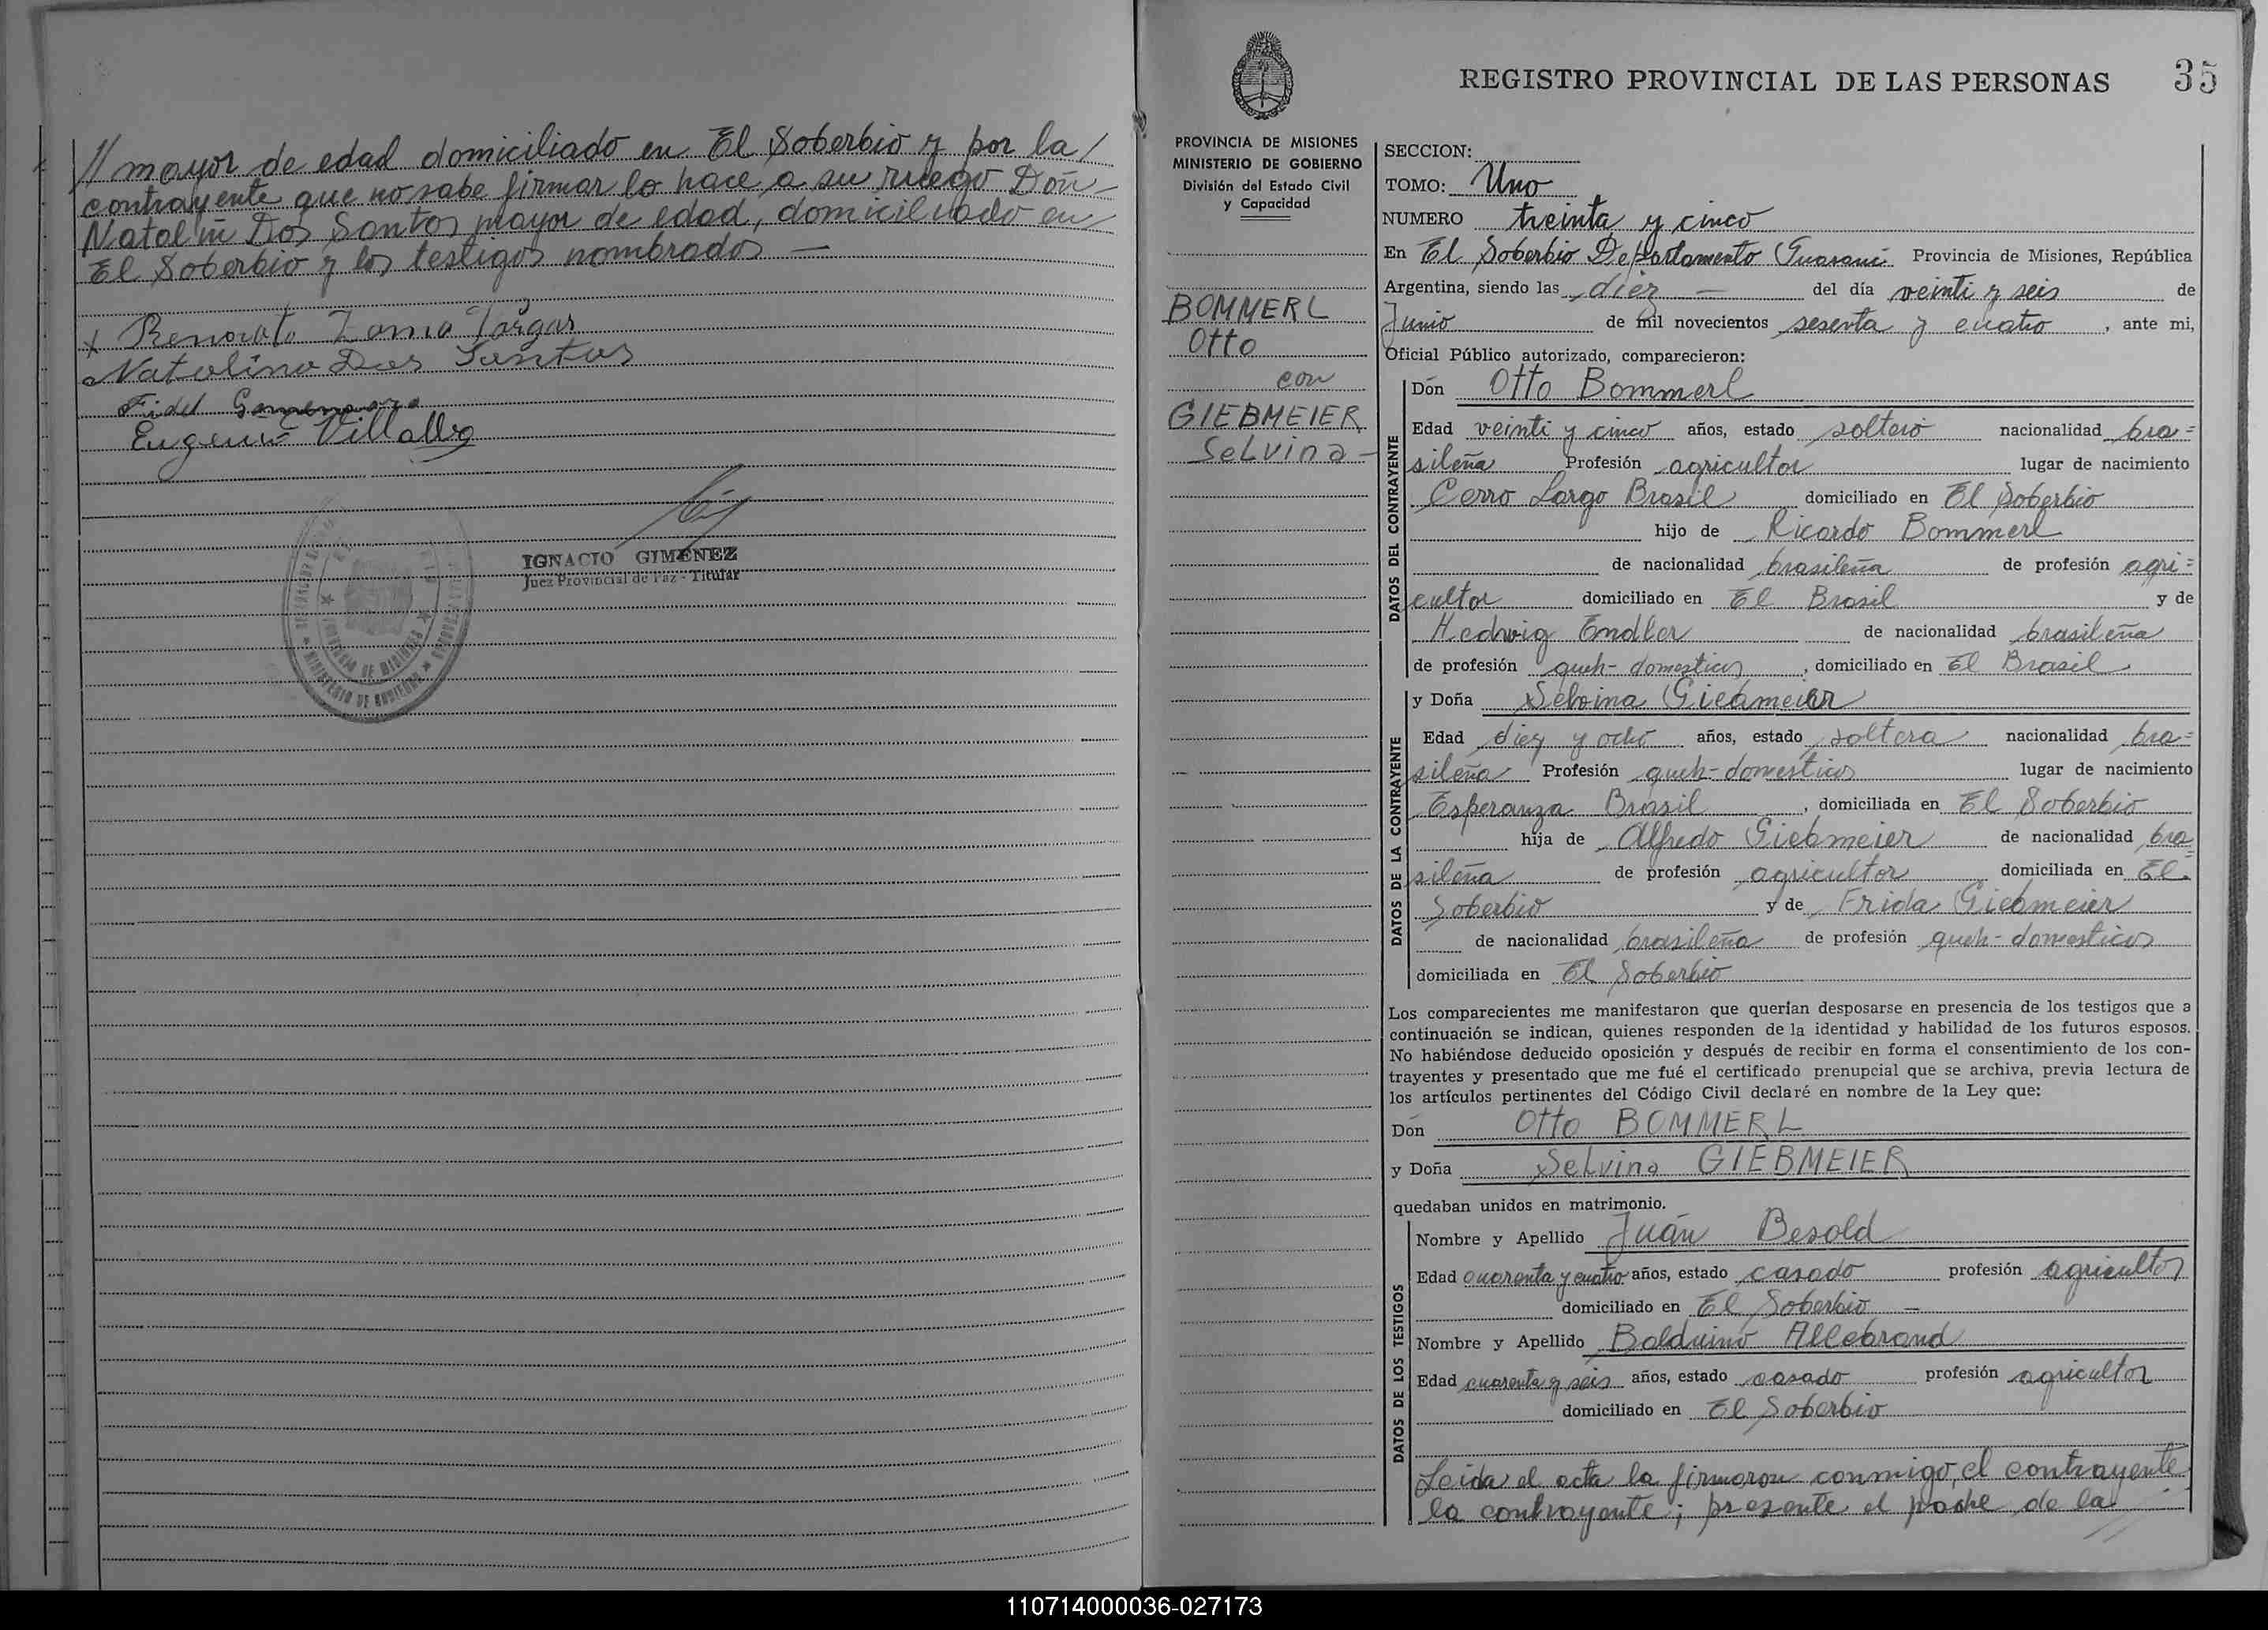 // mayor de edad domiciliado en El Soberbio y por la /
contrayente que no sabe firmar lo hace a su ruego Don
Natalin Dos Santos mayor de edad, domiciliado en
El Soberbio y los testigos nombrados —
x Renovato
Natalino Dos Santos
Fidel
Eugenio Villalba
IGNACIO GIMENEZ
Juez Provincial de Paz - Titular
MINISTERIO DE GOBIERNO
PROVINCIA DE MISIONES
REGISTRO PROVINCIAL DE LAS PERSONAS 35
PROVINCIA DE MISIONES
MINISTERIO DE GOBIERNO
División del Estado Civil
y Capacidad
BOMMERL
Otto
con
GIEBMEIER
Selvina -
SECCION:
TOMO: Uno
NUMERO treinta y cinco
En El Soberbio Departamento Guaraní Provincia de Misiones, República
Argentina, siendo las diez — del día veinti y seis de
Junio de mil novecientos sesenta y cuatro , ante mi,
Oficial Público autorizado, comparecieron:
DATOS DEL CONTRAYENTE
Don Otto Bommerl
Edad veinti y cinco años, estado soltero nacionalidad bra=
sileña Profesión agricultor lugar de nacimiento
Cerro Largo Brasil domiciliado en El Soberbio
hijo de Ricardo Bommerl
de nacionalidad brasileña de profesión agri=
cultor domiciliado en El Brasil y de
Hedwig Endler de nacionalidad brasileña
de profesión queh-domesticos , domiciliado en El Brasil
DATOS DE LA CONTRAYENTE
y Doña Selvina Giebmeier
Edad diez y ocho años, estado soltera nacionalidad bra=
sileña Profesión queh-domesticos lugar de nacimiento
Esperanza Brasil , domiciliada en El Soberbio
hija de Alfredo Giebmeier de nacionalidad bra=
sileña de profesión agricultor domiciliada en El
Soberbio y de Frida Giebmeier
de nacionalidad brasileña de profesión queh-domesticos
domiciliada en El Soberbio
Los comparecientes me manifestaron que querían desposarse en presencia de los testigos que a
continuación se indican, quienes responden de la identidad y habilidad de los futuros esposos.
No habiéndose deducido oposición y después de recibir en forma el consentimiento de los con-
trayentes y presentado que me fué el certificado prenupcial que se archiva, previa lectura de
los artículos pertinentes del Código Civil declaré en nombre de la Ley que:
Don Otto BOMMERL
y Doña Selvina GIEBMEIER
quedaban unidos en matrimonio.
DATOS DE LOS TESTIGOS
Nombre y Apellido Juan Besold
Edad cuarenta y cuatro años, estado casado profesión agricultor
domiciliado en El Soberbio —
Nombre y Apellido Balduino Allebrand
Edad cuarenta y seis años, estado casado profesión agricultor
domiciliado en El Soberbio
Leida el acta la firmaron conmigo, el contrayente
la contrayente; presente el padre de la //
110714000036-027173